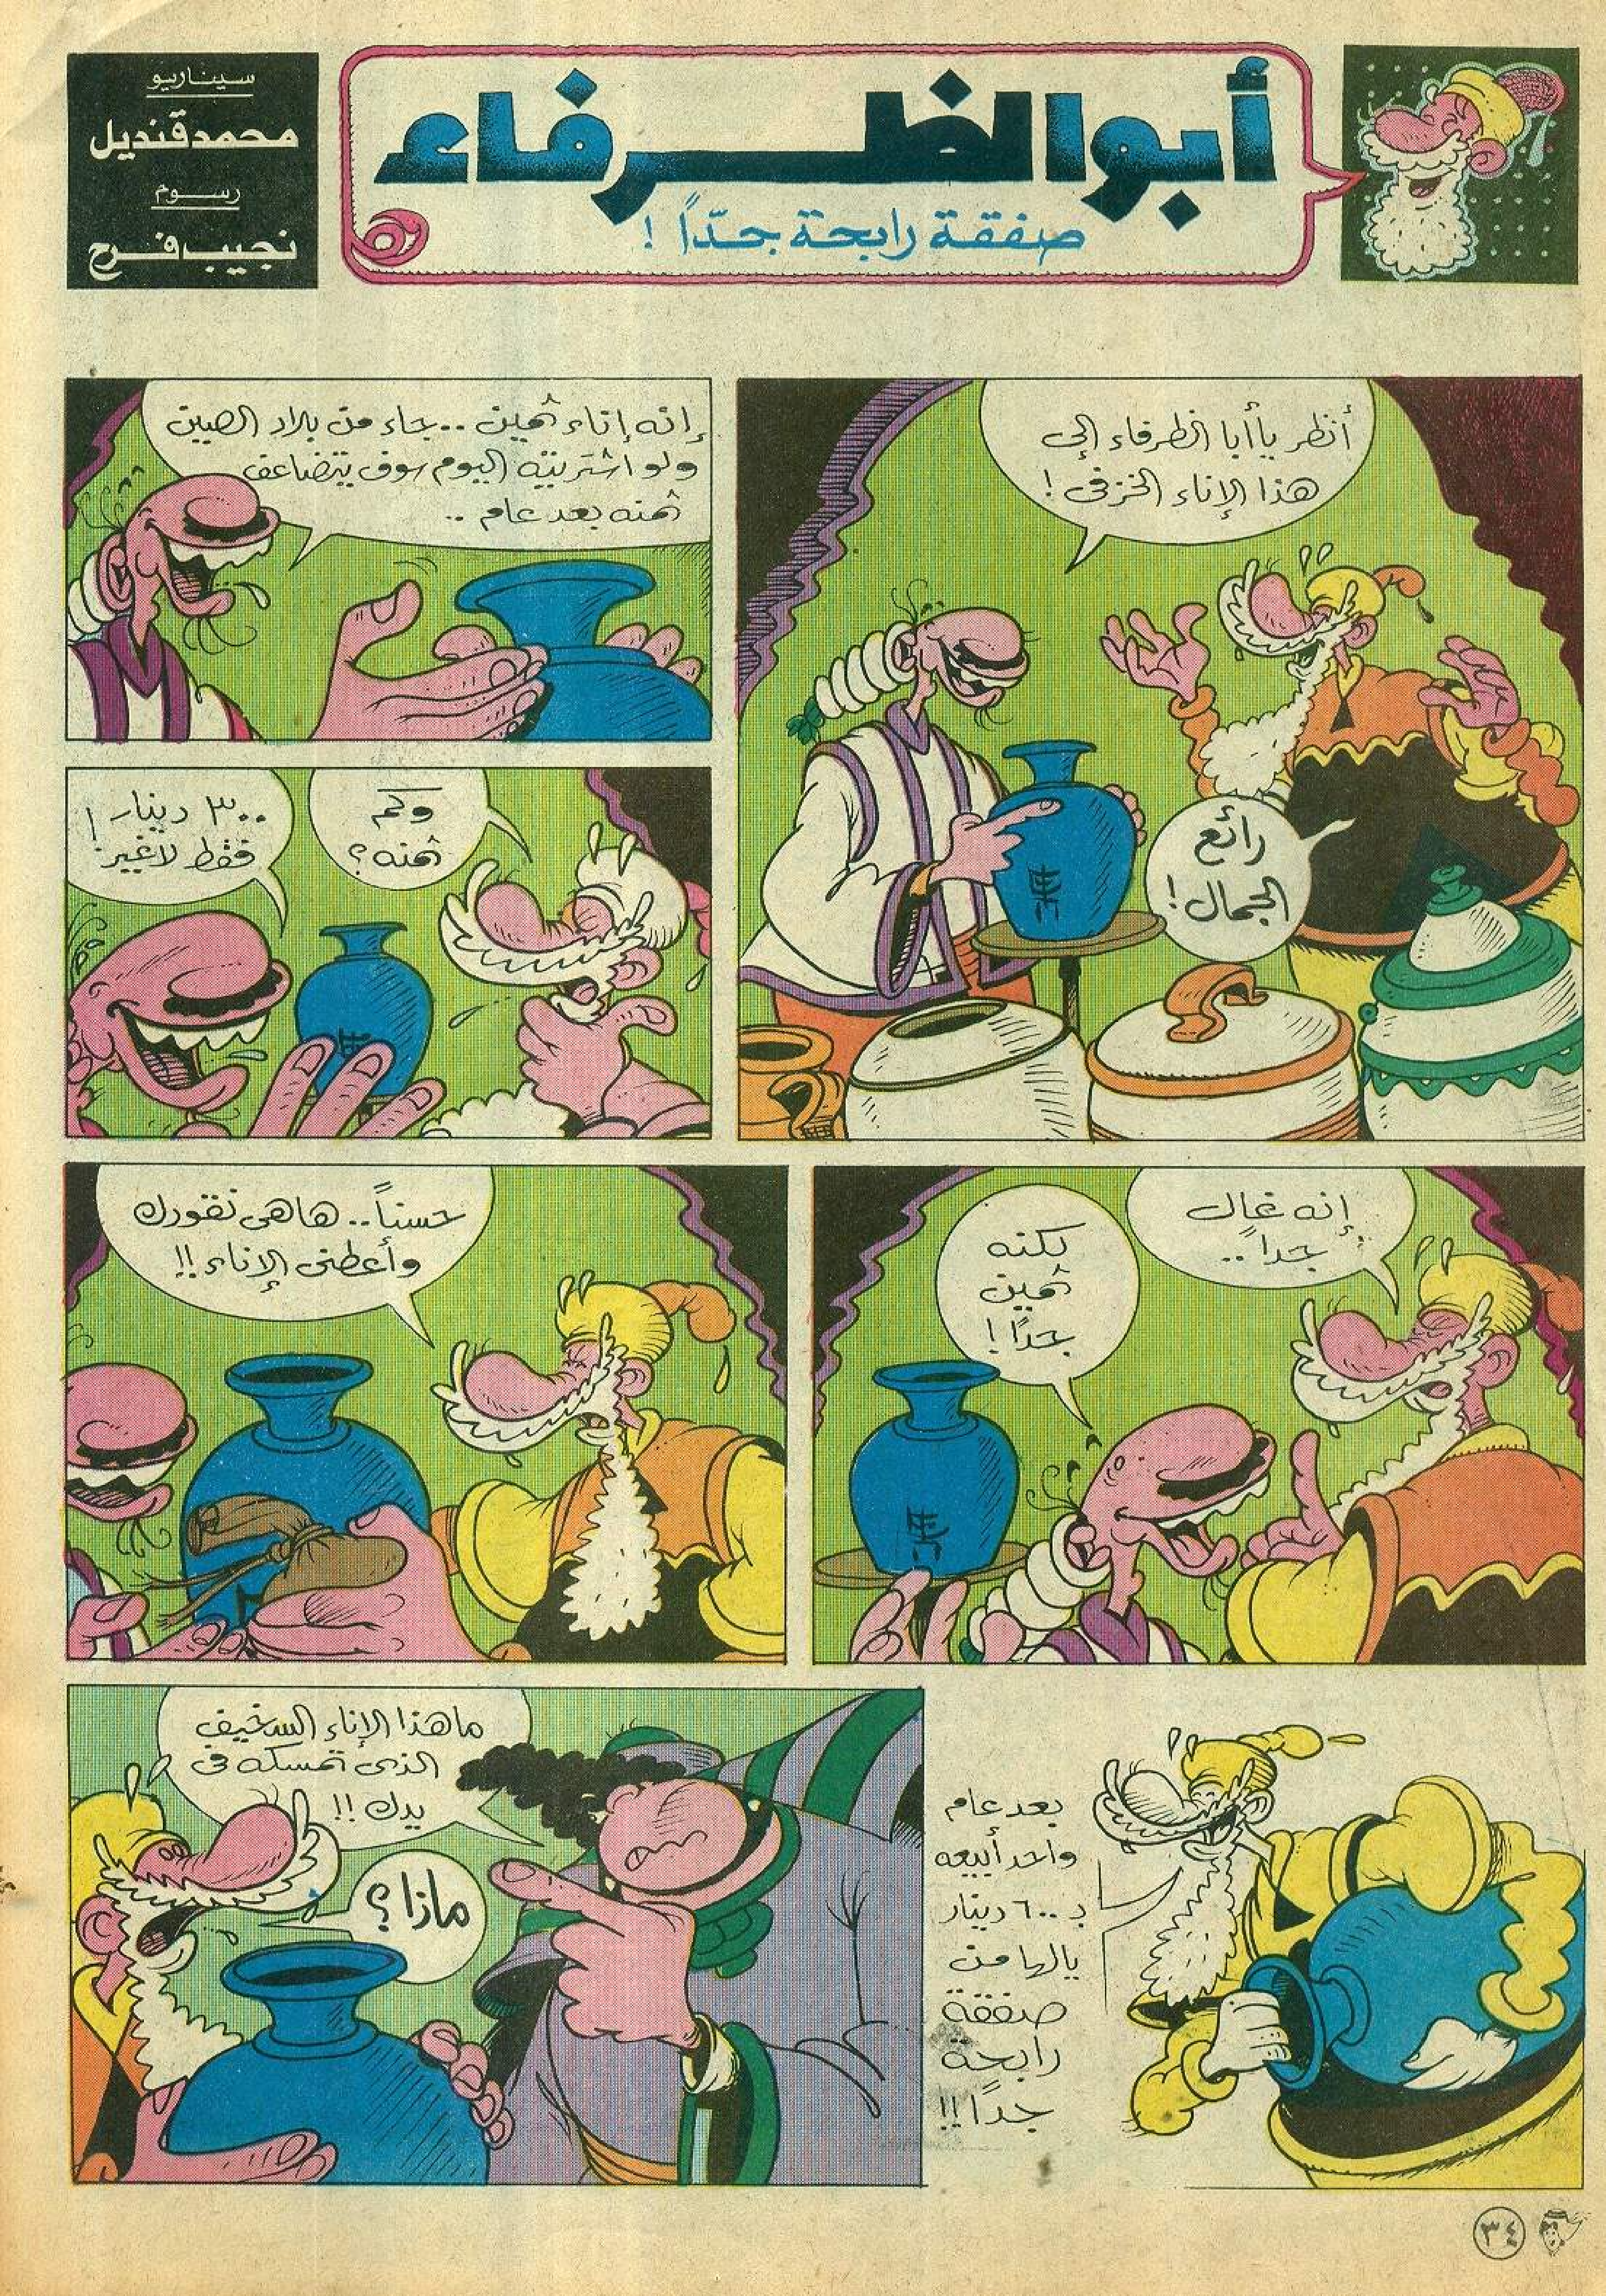 أبو الظرفاء
صفقة رابحة جدّاً !
سيناريو
محمد قنديل
رسوم
نجيب فرح
أنظر يا أبا الظرفاء إلى
هذا الإناء الخزفى !
رائع
الجمال !
إنه إناء ثمين .. جاء من بلاد الصين
ولو اشتريته اليوم سوف يتضاعف
ثمنه بعد عام ..
وكم
ثمنه ؟
٣٠٠ دينار
فقط لاغير !
إنه غال
جداً ..
لكنه
ثمين
جداً !
حسناً .. هاهى نقودك
وأعطنى الإناء !!
بعد عام
واحد أبيعه
بـ ٦٠٠ دينار
يالها من
صفقة
رابحة
جداً !!
ما هذا الإناء السخيف
الذى تمسكه فى
يدك !!
ماذا ؟
٣٤